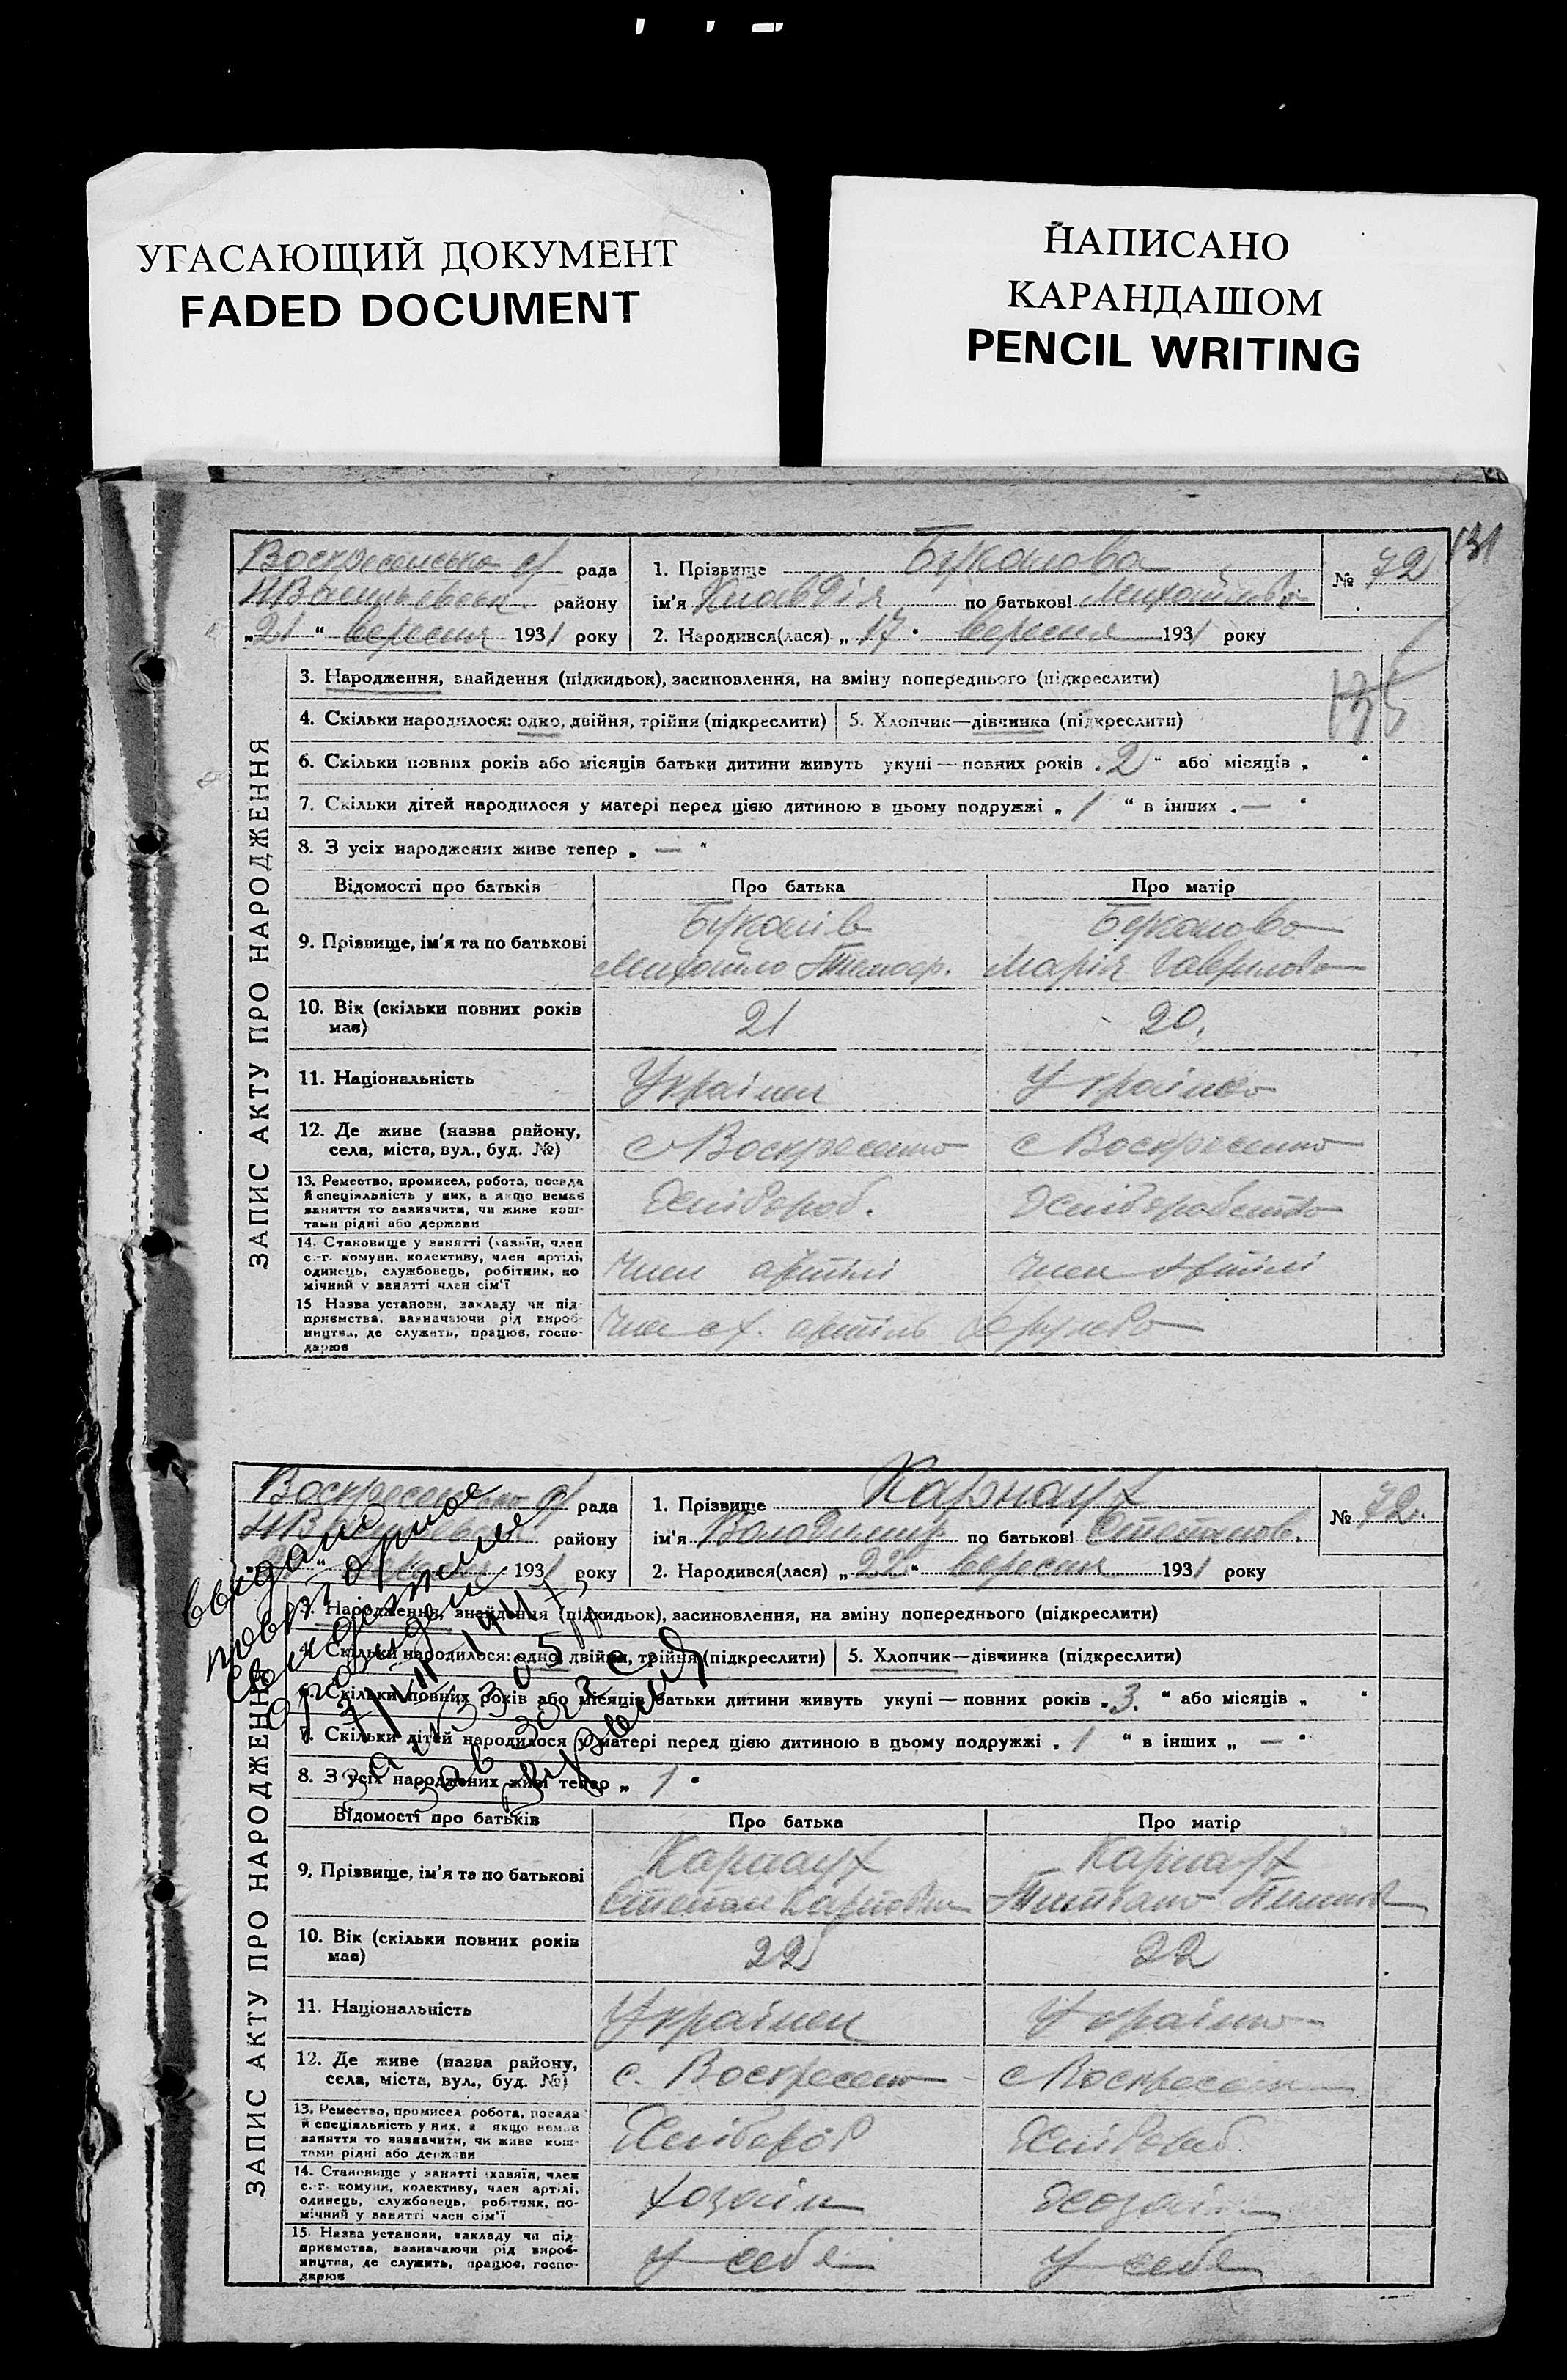 УГАСАЮЩИЙ ДОКУМЕНТ
FADED DOCUMENT
НАПИСАНО
КАРАНДАШОМ
PENCIL WRITING
131
135
ЗАПИС АКТУ ПРО НАРОДЖЕННЯ
Воскресенська с/ рада
району
„21“ вересня 1931 року
1. Прізвище Буканова
ім'я Клавдія по батькові Михайлівна
№ 72
2. Народився(лася) „17“ вересня 1931 року
3. Народження, знайдення (підкидьок), засиновлення, на зміну попереднього (підкреслити)
4. Скільки народилося: одно, двійня, трійня (підкреслити)
5. Хлопчик—дівчинка (підкреслити)
6. Скільки повних років або місяців батьки дитини живуть укупі — повних років „2“ або місяців „ “
7. Скільки дітей народилося у матері перед цією дитиною в цьому подружжі „1“ в інших „—“
8. З усіх народжених живе тепер „—“
Відомості про батьків Про батька Про матір
9. Прізвище, ім'я та по батькові
Буканів Буканова
Михайло Тимоф. Марія Гаврилова
10. Вік (скільки повних років має) 21 20.
11. Національність Українец Українка
12. Де живе (назва району, села, міста, вул., буд. №) с Воскресенка с Воскресенка
13. Ремество, промисел, робота, посада й спеціяльність у них, а якщо немає заняття то зазначити, чи живе коштами рідні або держави
Хлібороб. Хліборобство
14. Становище у занятті (хазяїн, член с.-г. комуни, колективу, член артілі, одинець, службовець, робітник, помічний у занятті член сім'ї
член артілі член артілі
15 Назва установи, закладу чи підприємства, зазначаючи рід виробництва, де служить, працює, господарює
артіль
ЗАПИС АКТУ ПРО НАРОДЖЕННЯ
Воскресенська с/ рада
району
1931 року
1. Прізвище Карнаух
ім'я Володимир по батькові Степанов.
№ 72.
2. Народився(лася) „22“ вересня 1931 року
выдано
повторное
свидетельство
3. Народження, знайдення (підкидьок), засиновлення, на зміну попереднього (підкреслити)
4. Скільки народилося: одно, двійня, трійня (підкреслити)
5. Хлопчик—дівчинка (підкреслити)
6. Скільки повних років або місяців батьки дитини живуть укупі — повних років „3.“ або місяців „ “
7. Скільки дітей народилося у матері перед цією дитиною в цьому подружжі „1“ в інших „—“
8. З усіх народжених живе тепер „1“
Відомості про батьків Про батька Про матір
9. Прізвище, ім'я та по батькові
Карнаух Карнаух
Степан Карпович
10. Вік (скільки повних років має) 22 22
11. Національність Українец Українка
12. Де живе (назва району, села, міста, вул., буд. №) с. Воскресенка с Воскресенка
13. Ремество, промисел робота, посада й спеціяльність у них, а якщо немає заняття то зазначити, чи живе коштами рідні або держави
Хлібороб Хлібороб
14. Становище у занятті (хазяїн, член с.-г. комуни, колективу, член артілі, одинець, службовець, робітник, помічний у занятті член сім'ї
хозаїн хозаїн
15. Назва установи, закладу чи підприємства, зазначаючи рід виробництва, де служить, працює, господарює
у себе у себе